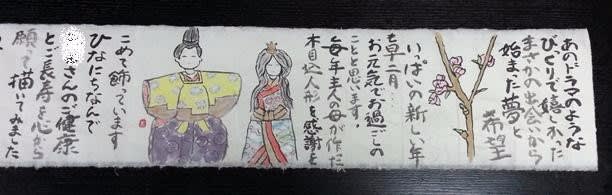 あのドラマのような
びっくりで嬉しかった
まさかの出会いから
始まった夢と
希望
いっぱいの新しい年
も早二月…
お元気でお過ごしの
ことと思います。
毎年主人の母が作った
木目込人形を感謝を
こめて飾っています
ひなにちなんで
さんのご健康
とご長寿を心から
願って描いてみました